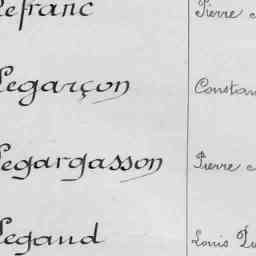 Lefranc Pierre
Legarçon Constan
Legargasson Pierre
Legand Louis